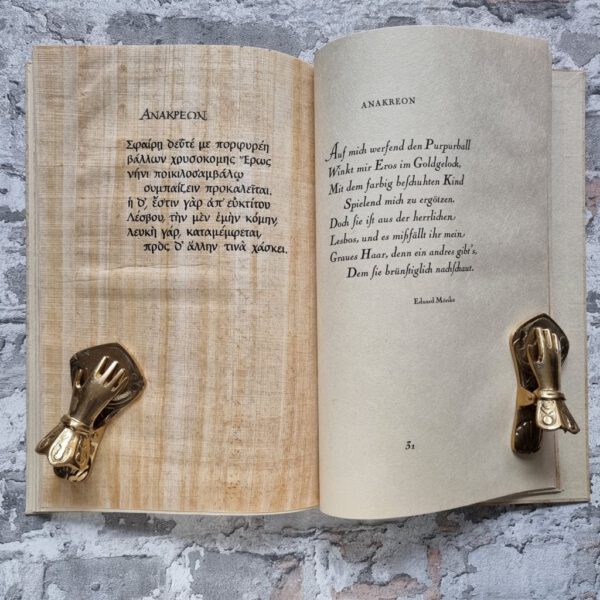 ΑΝΑΚΡΕΩΝ
Σφαίρῃ δεῦτέ με πορφυρέῃ
βάλλων χρυσοκομης Ἔρως
νήνι ποικιλοσαμβάλῳ
συμπαίζειν προκαλεῖται,
ἡ δ', ἔστιν γὰρ ἀπ' εὐκτίτου
Λέσβου, τὴν μὲν ἐμὴν κόμην,
λευκὴ γάρ, καταμέμφεται,
πρὸς δ' ἄλλην τινὰ χάσκει.
ANAKREON
Auf mich werfend den Purpurball
Winkt mir Eros im Goldgelock,
Mit dem farbig beſchuhten Kind
Spielend mich zu ergötzen.
Doch ſie iſt aus der herrlichen
Lesbos, und es mißfällt ihr mein
Graues Haar, denn ein andres gibt's,
Dem ſie brünſtiglich nachſchaut.
Eduard Mörike
31